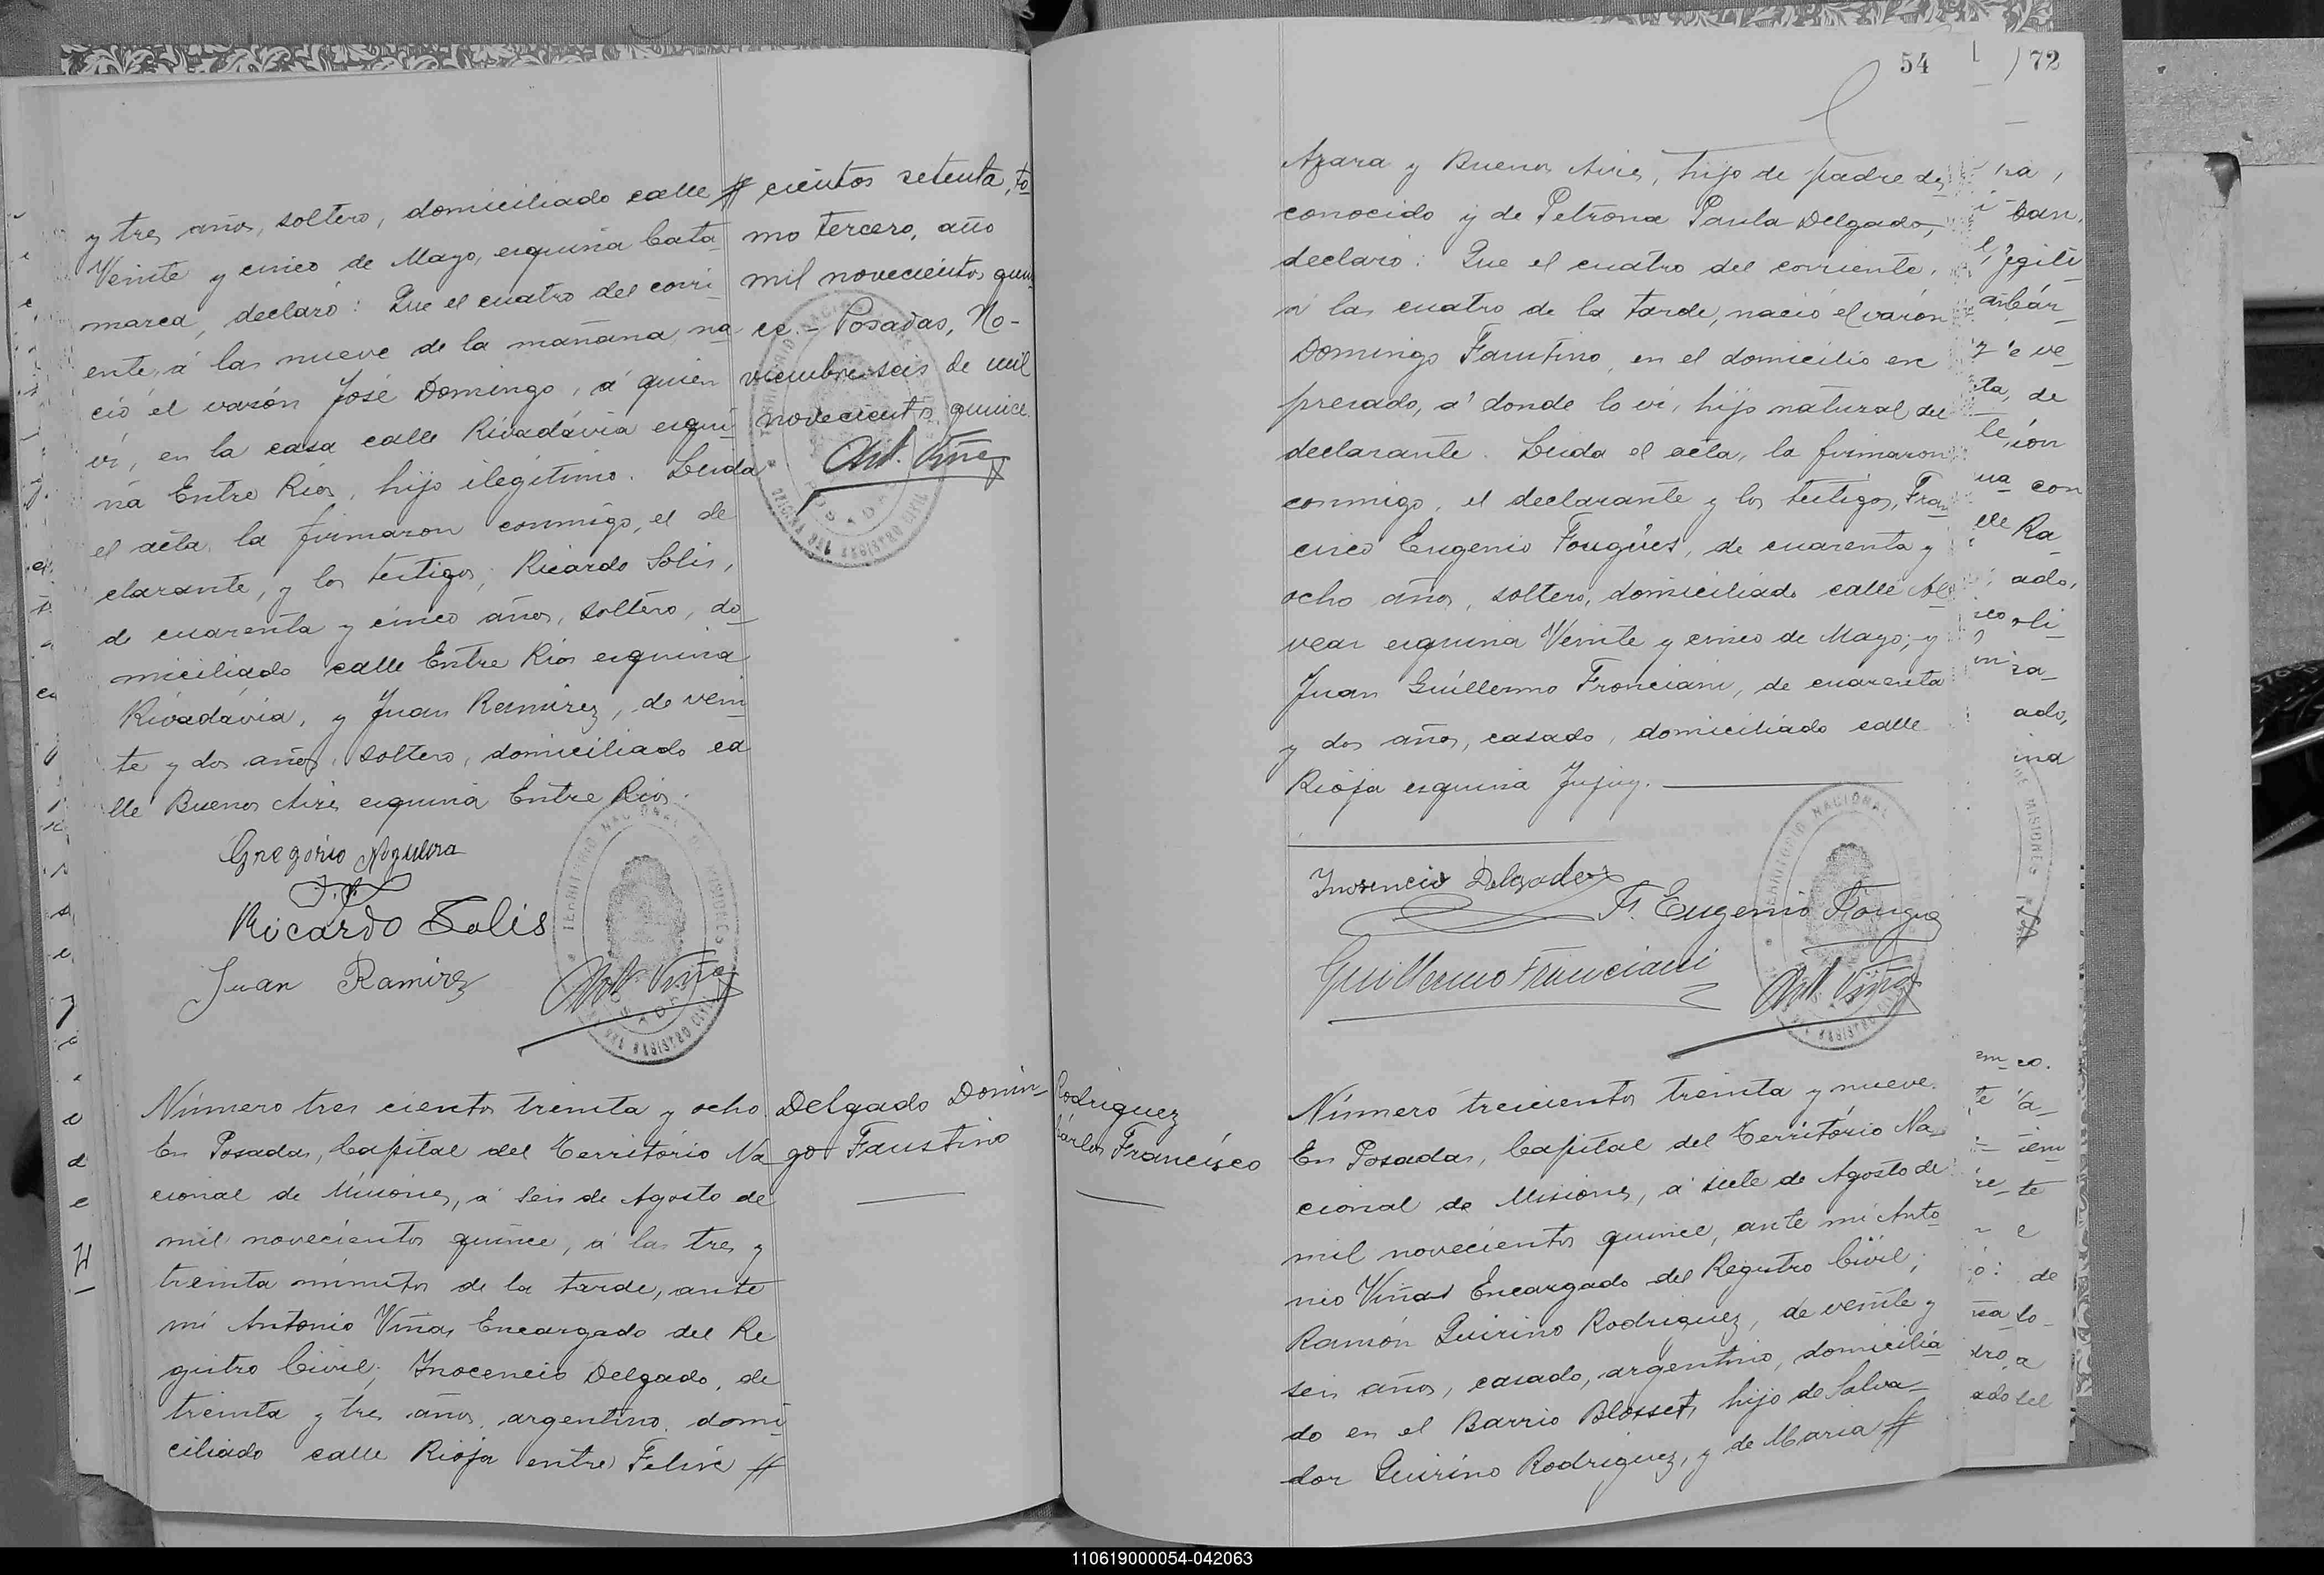 y tres años, soltero, domiciliado calle #
Veinte y cinco de Mayo, esquina Cata
marca, declaró: Que el cuatro del corri-
ente, á las nueve de la mañana, na-
ció el varón José Domingo, á quien
ví, en la casa calle Rivadávia esqui-
na Entre Rios, hijo ilegítimo. Leida
el acta, la firmaron conmigo, el de
clarante, y los testigos, Ricardo Solis,
de cuarenta y cinco años, soltero, do-
miciliado calle Entre Rios esquina
Rivadávia, y Juan Ramirez, de vein-
te y dos años, soltero, domiciliado ca
lle Buenos Aires esquina Entre Rios.
Gregório Noguera
Ricardo Solis
Juan Ramirez
Ant. Viñas
cientos setenta, to-
mo tercero, año
mil novecientos quin
ce.- Posadas, No-
viembre seis de mil
novecientos quince.
Ant. Viñas
Número tres cientos treinta y ocho
En Posadas, Capital del Território Na
cional de Misiones, á seis de Agosto de
mil novecientos quince, á las tres y
treinta minutos de la tarde, ante
mi Antonio Viñas Encargado del Re
gistro Civil; Inocencio Delgado, de
treinta y tres años, argentino, domi-
ciliado calle Rioja entre Felix #
Delgado Domin-
go Faustino
54
72
Azara y Buenos Aires, hijo de padre des
conocido y de Petrona Paula Delgado,
declaró: Que el cuatro del corriente,
á las cuatro de la tarde, nació el varón
Domingo Faustino, en el domicilio ex
presado, á donde lo ví, hijo natural del
declarante. Leida el acta, la firmaron
conmigo, el declarante y los testigos, Fran
cisco Eugenio Fougües, de cuarenta y
ocho años, soltero, domiciliado calle Al
vear esquina Veinte y cinco de Mayo, y
Juan Guillermo Franciani, de cuarenta
y dos años, casado, domiciliado calle
Rioja esquina Jujuy.
Inosencio Delgado
F. Eugenio Fougue
Guillermo Franciani
Ant. Viñas
Rodriguez
Cárlos Francisco
Número trescientos treinta y nueve.
En Posadas, Capital del Território Na-
cional de Misiones, á siete de Agosto de
mil novecientos quince, ante mi Anto-
nio Viñas Encargado del Registro Civil;
Ramón Quirino Rodriguez, de veinte y
seis años, casado, argentino, domicilia-
do en el Barrio Blosset, hijo de Salva-
dor Quirino Rodriguez, y de Maria #
110619000054-042063